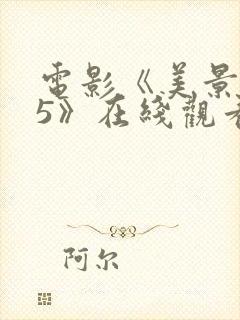 電影《美景
5》在綫觀看
阿尔